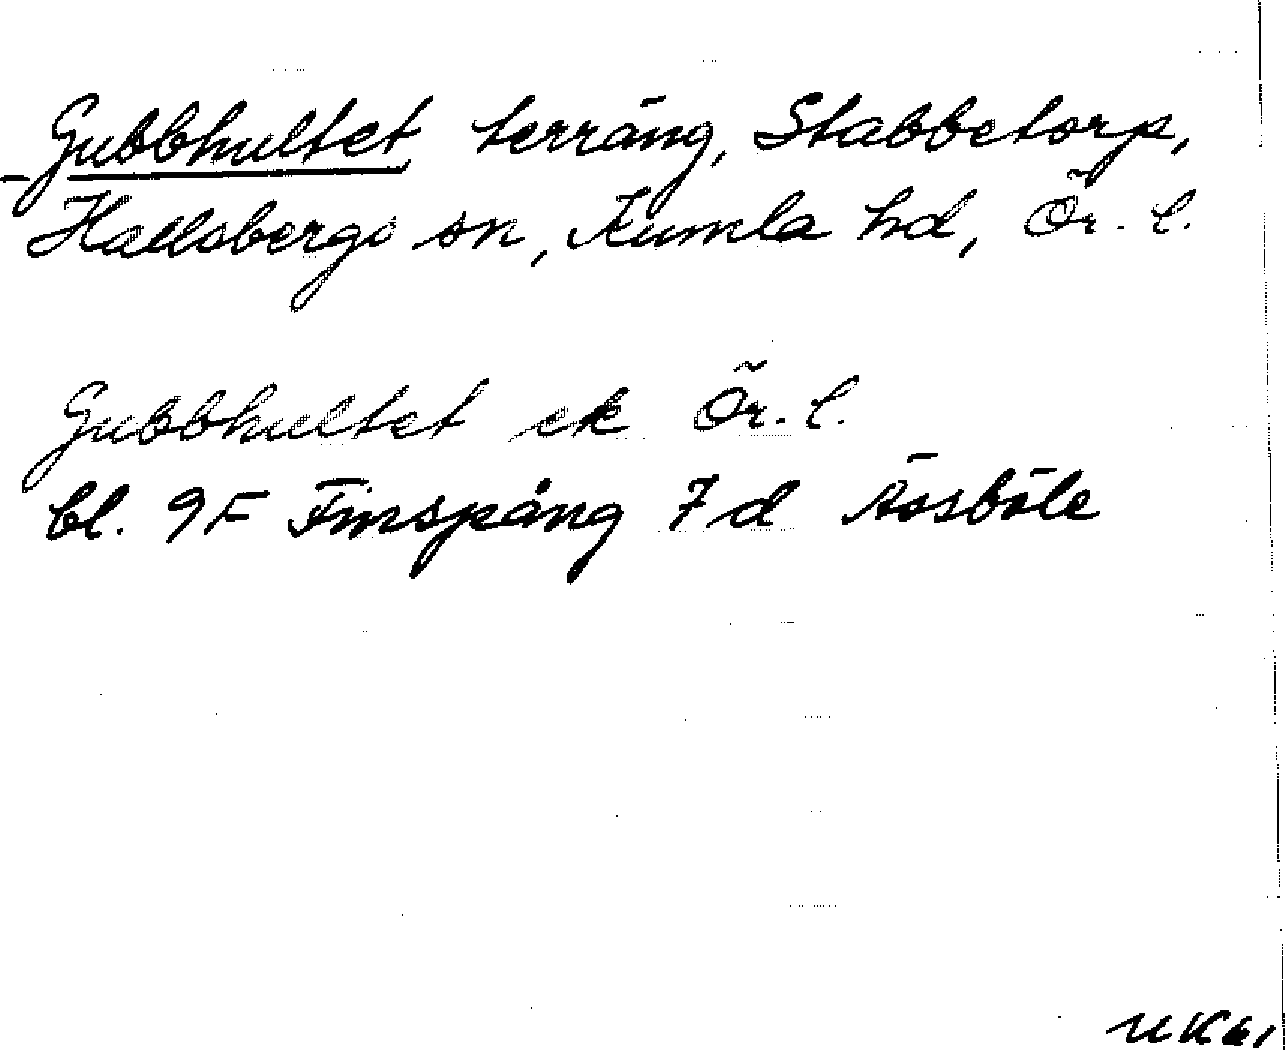 Gubbhultet, terräng, Stabbetorp,
Hallsbergs sn, Kumla hd, Ör. l.
Gubbhultet ek Ör. l.
bl. 9F Finspång 7d Åsböle